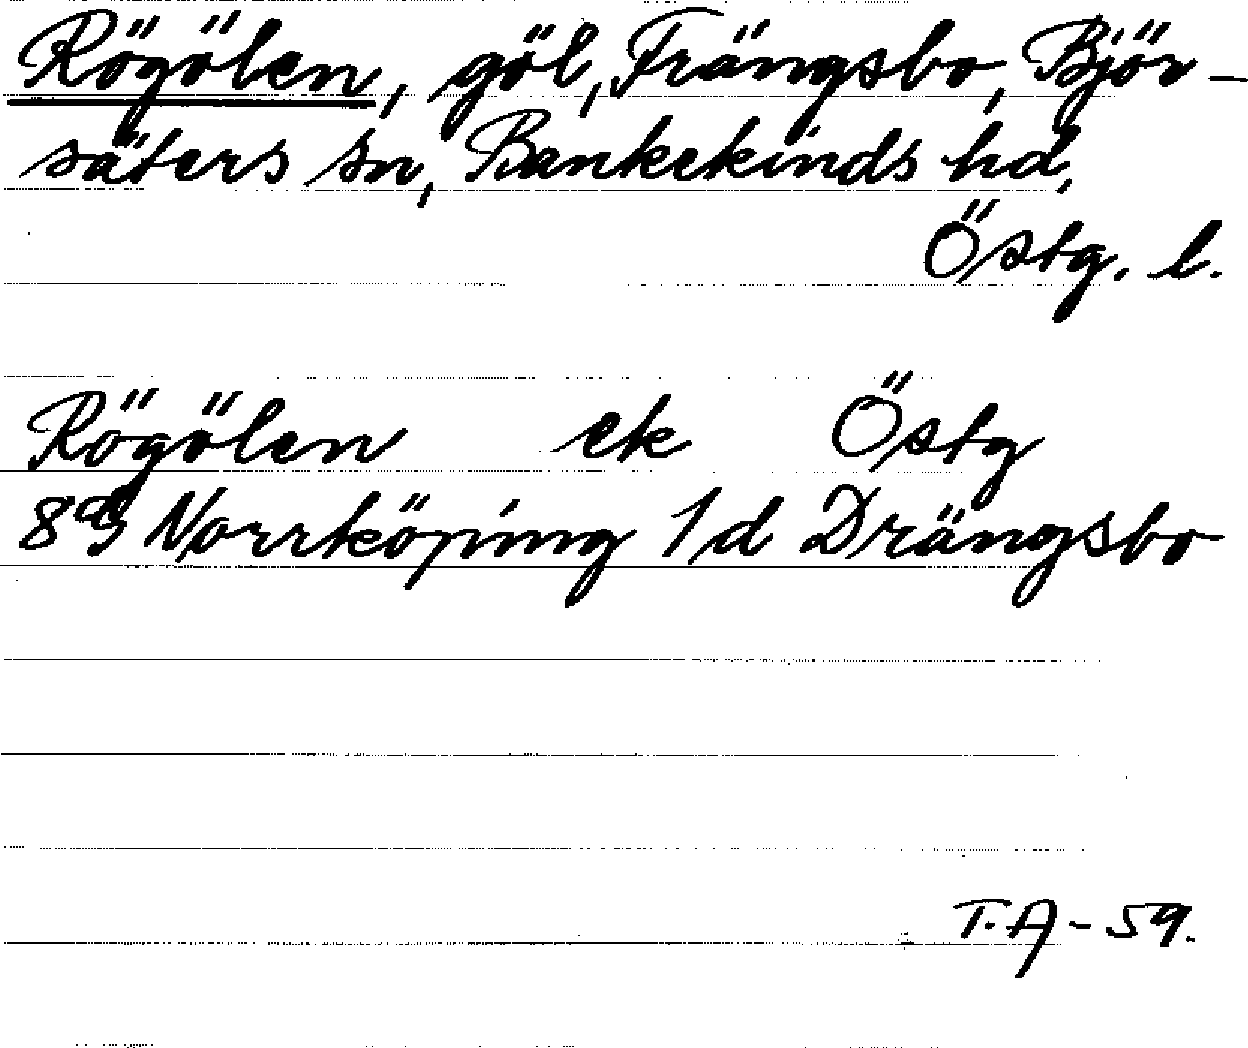 Rögölen, göl, Frängsbo, Björ-
säters sn, Bankekinds hd,
Östg. l.
Rögölen ek Östg
8aG Norrköping 1d Drängsbo
T.A-59.